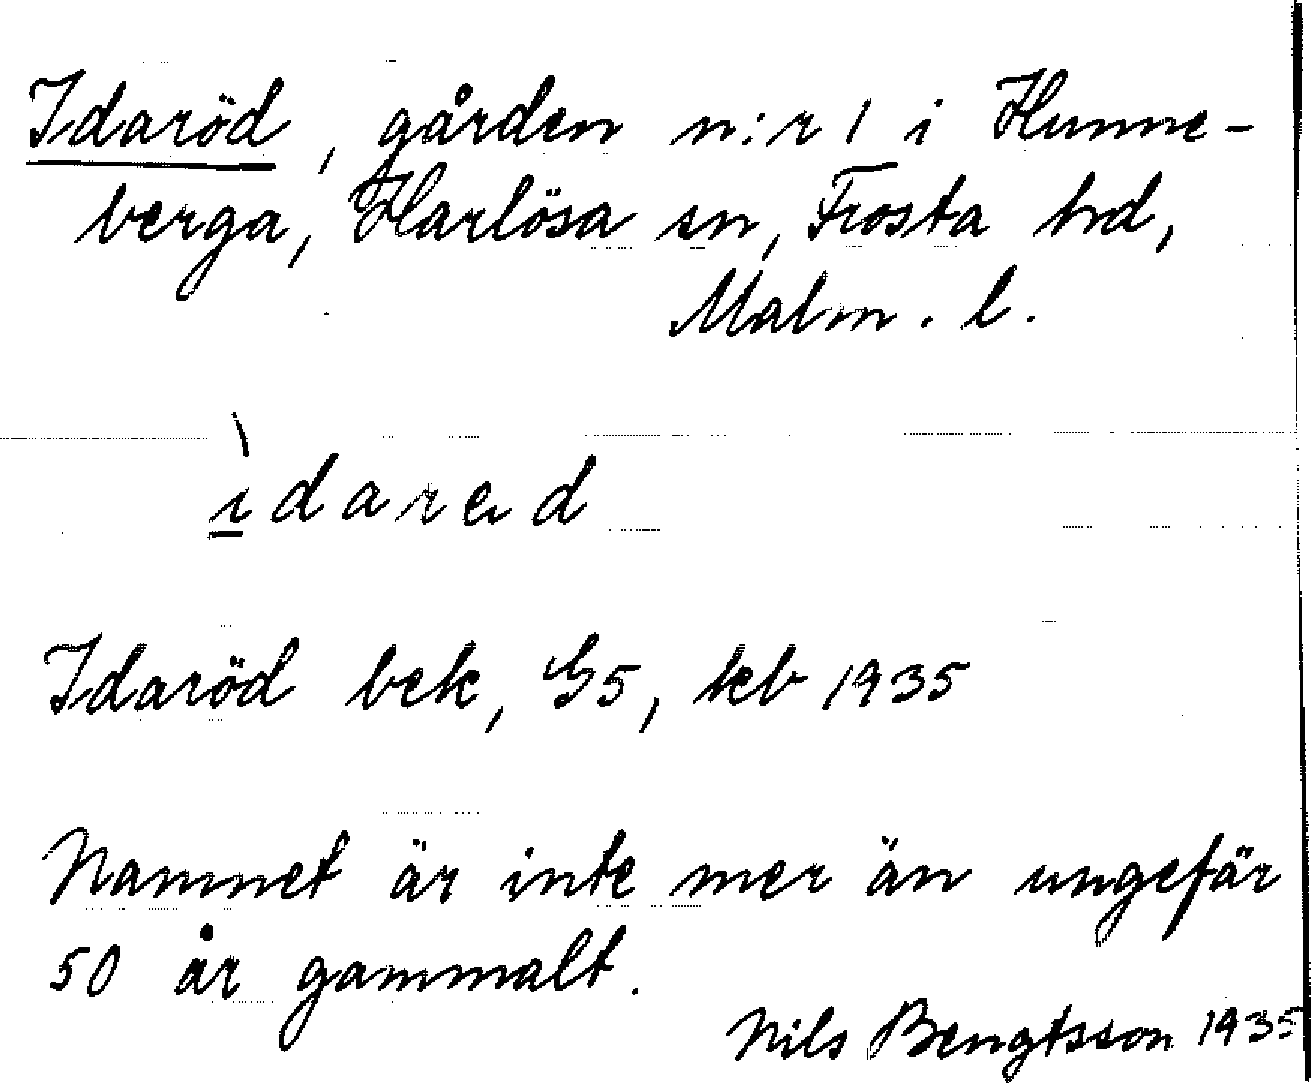 Idaröd, gården n:r 1 i Hunne-
berga, Harlösa sn, Frosta hd,
Malm. l.
ìdared
Idaröd bek, G5, kb 1935
Namnet är inte mer än ungefär
50 år gammalt.
Nils Bengtsson 1935